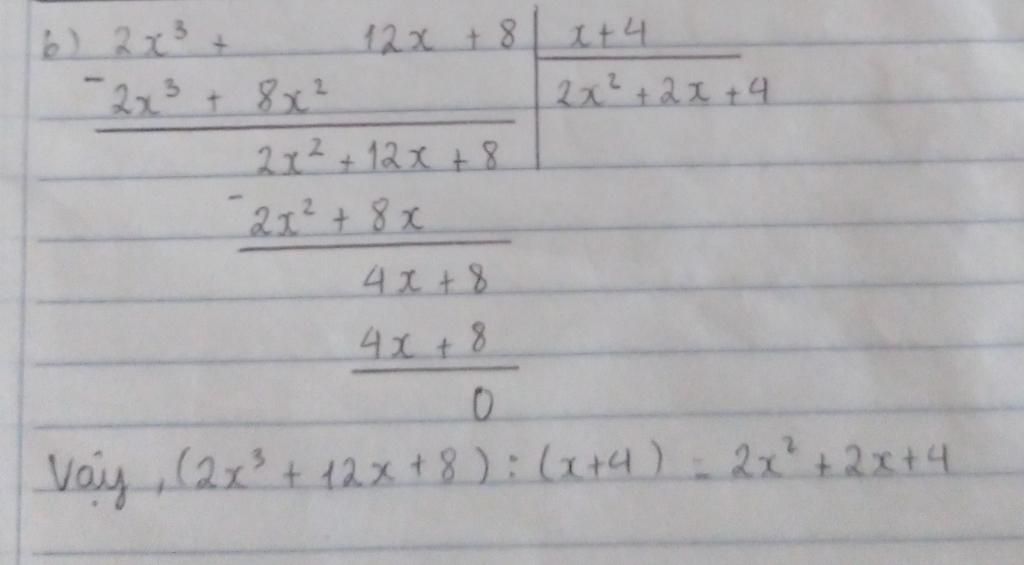 b) 2x³ + 12x + 8 | x+4
- 2x³ + 8x² | 2x² + 2x + 4
2x² + 12x + 8
- 2x² + 8x
4x + 8
4x + 8
0
Vậy, (2x³ + 12x + 8) : (x+4) = 2x² + 2x + 4